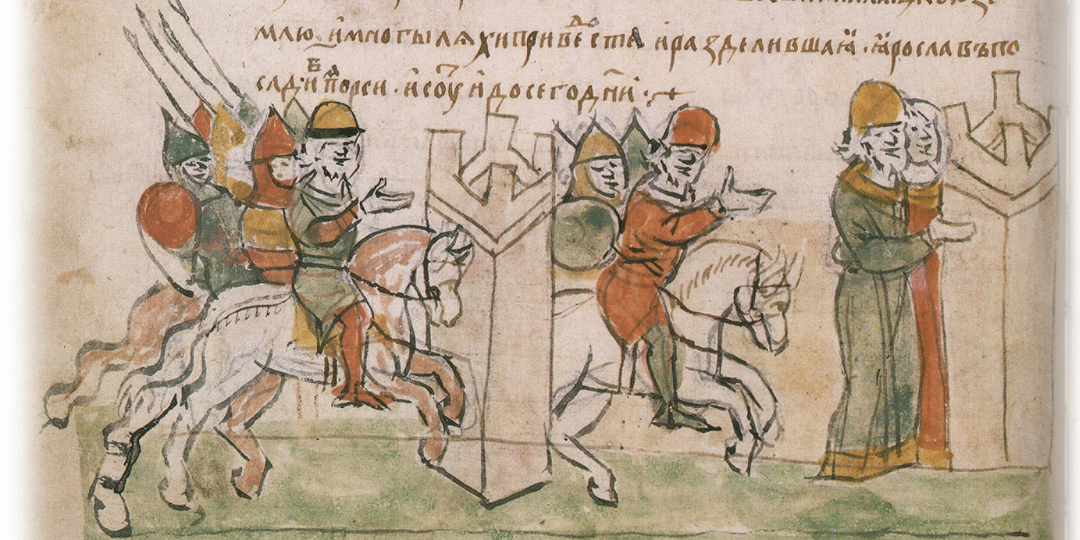 млю . и многы лѧхи приве ⷣста и разделивша ѧ . ѩрославъ по
сади порси . и соуⷮ и до сего дн҃и .